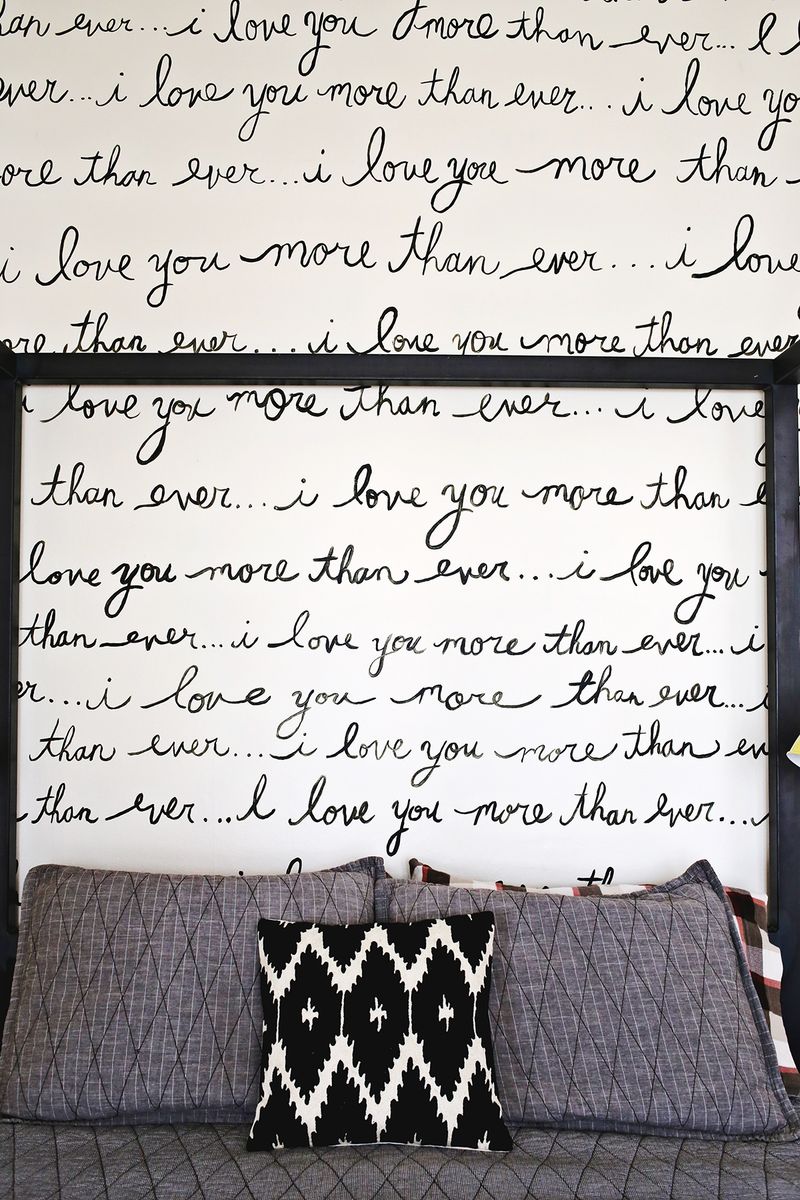 than ever...i love you more than ever... I
ever...i love you more than ever...i love you
more than ever...i love you more than
i love you more than ever...i love
more than ever...i love you more than ever
i love you more than ever...i love
than ever...i love you more than
love you more than ever...i love you
than ever...i love you more than ever...i
er...i love you more than ever...i
than ever...i love you more than ev
than ever...I love you more than ever...